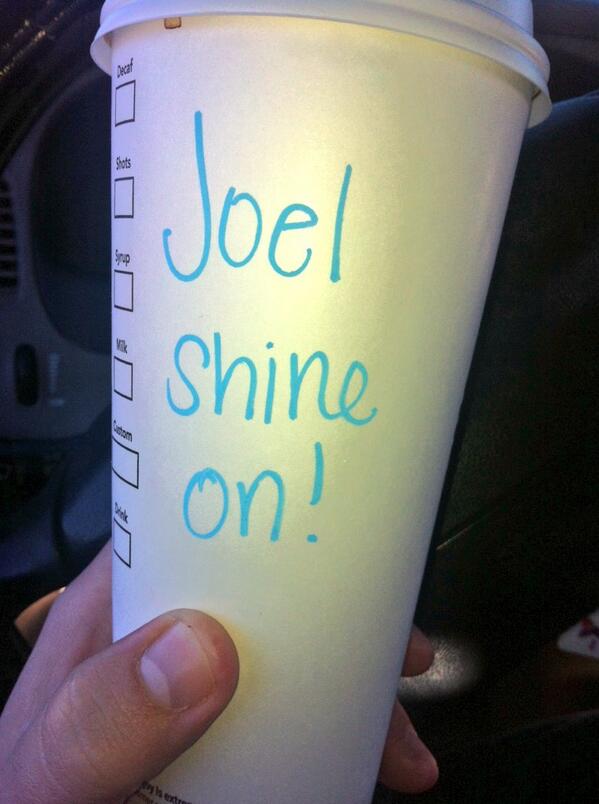 Decaf
Shots
Syrup
Milk
Custom
Drink
Joel
shine
on!
is extre